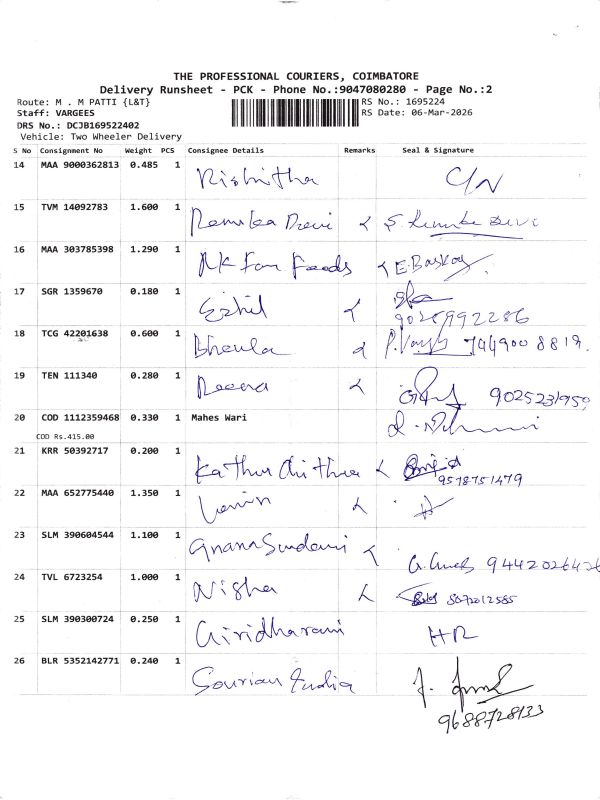 THE PROFESSIONAL COURIERS, COIMBATORE
Delivery Runsheet - PCK - Phone No.:9047080280 - Page No.:2
Route: M . M PATTI {L&T} RS No.: 1695224
Staff: VARGEES RS Date: 06-Mar-2026
DRS No.: DCJB169522402
Vehicle: Two Wheeler Delivery
S No Consignment No Weight PCS Consignee Details Remarks Seal & Signature
14 MAA 9000362813 0.485 1 Rishitha
15 TVM 14092783 1.600 1 Renuka Devi
16 MAA 303785398 1.290 1 Mk Fam Foods E. Baskar
17 SGR 1359670 0.180 1 Ezhil
18 TCG 42201638 0.600 1 7449008819
19 TEN 111340 0.280 1 Reena 9025231959
20 COD 1112359468 0.330 1 Mahes Wari
COD Rs.415.00
21 KRR 50392717 0.200 1 9578751479
22 MAA 652775440 1.350 1 Lenin
23 SLM 390604544 1.100 1 Gnana Sundari
24 TVL 6723254 1.000 1 Nisha
25 SLM 390300724 0.250 1 Giridharan HR
26 BLR 5352142771 0.240 1 Sourian India
9688728133